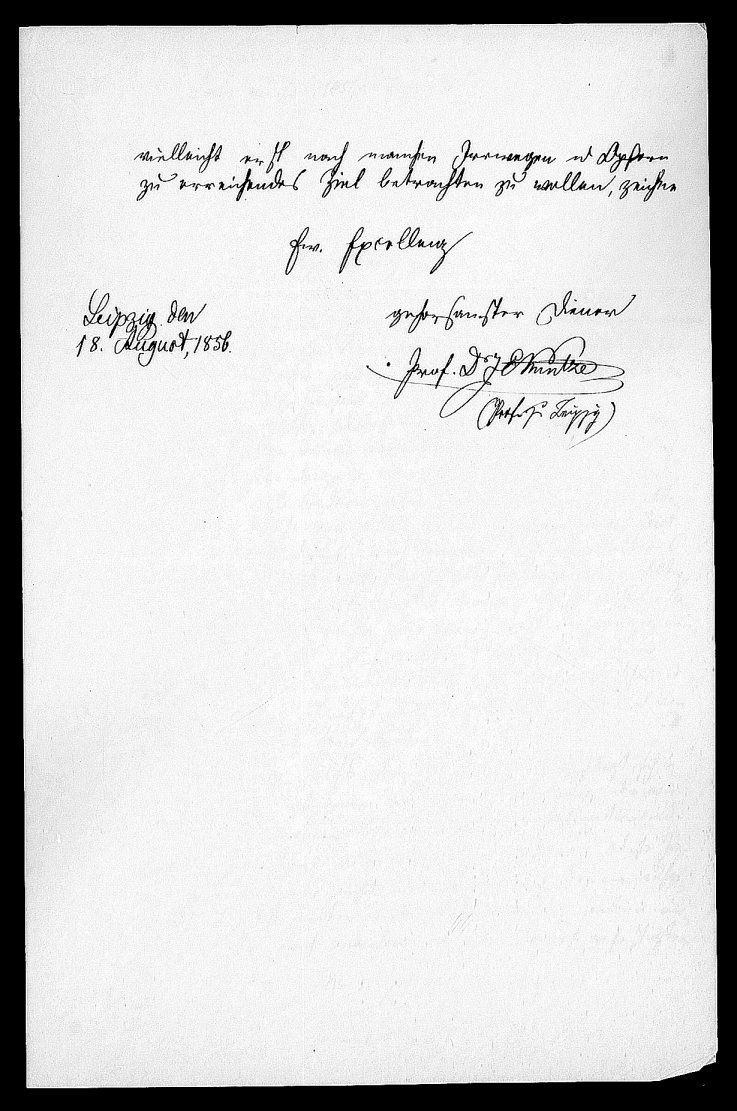 vielleicht erst nach manchen Irrwegen u Opfern
zu erreichendes Ziel betrachten zu wollen, zeichne
Ew. Excellenz
gehorsamster Diener
Leipzig den
18. August, 1856.
Prof. Dr J E Kuntze
Leipzig)